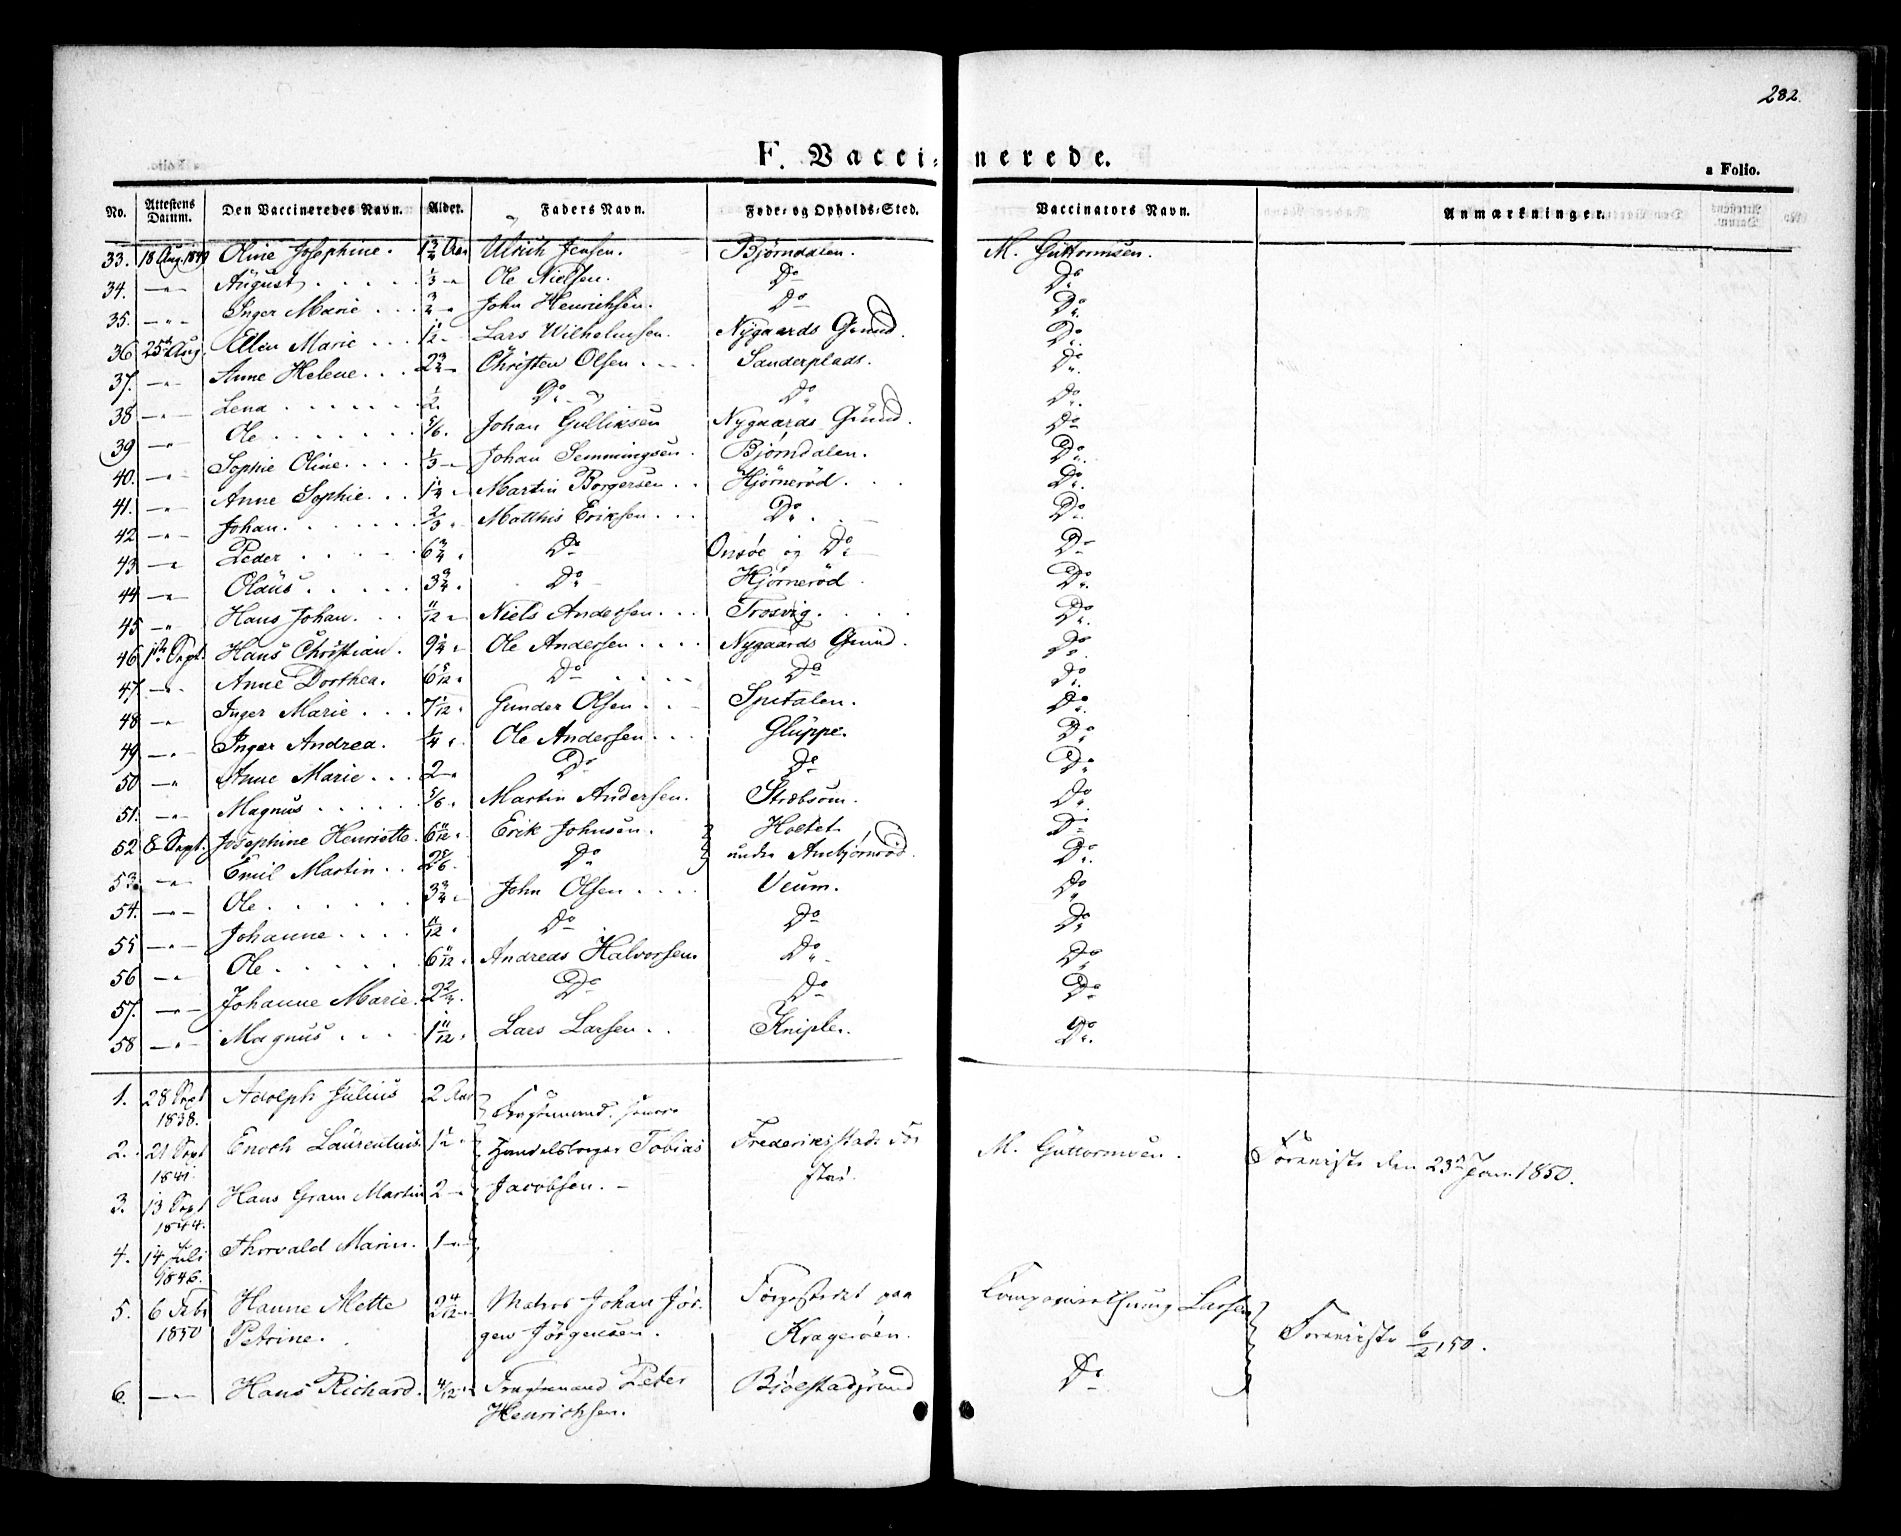 282.
F. Vacci- nerede.
a Folio.
No. Attestens Datum. Den Vaccineredes Navn. Alder. Faders Navn. Føde- og Opholds-Sted. Vaccinators Navn. Anmærkninger.
33. 18 Aug. 1849 Oline Josephine. 1 3/4 Aar Ulrich Jensen. Bjørndalen. M. Guttormsen.
34. —"— August 1/3 —" Ole Nielsen. Do Do
35. —"— Inger Marie 3/4 —" John Henrichsen. Do Do
36 25de Aug. Ellen Marie 1 1/2 — Lars Wilhelmsen. Nygaards Grund. Do
37. —"— Anne Helene 2 3/4 — Christen Olsen Sanderplads. Do
38 —"— Lena 1/2. Do Do Do
39 —"— Ole 5/6. Johan Gulliksen Nygaards Grund. Do
40. —"— Sophie Oline 1/3 —" Johan Semmingsen. Bjørndalen. Do
41. —"— Anne Sophie 1 1/4 " Martin Borgersen Hjørnerød Do
42 —"— Johan 2/3 " Matthis Eriksen Do Do
43 —"— Peder 6 3/4 " Do Onsøe og Do Do
44 —"— Olaus 3 3/4 " Do Hjørnerød Do
45 —"— Hans Johan 11/12 " Niels Andersen Trosvig. Do
46 1ste Sept. Hans Christian. 9 1/4 " Ole Andersen Nygaards Grund. Do
47. —"— Anne Dorthea. 6 5/12 " Do Do Do
48 —"— Inger Marie 7 1/12 " Gunder Olsen Spetalen. Do
49 —"— Inger Andrea. 1/4 " Ole Andersen Gluppe. Do
50 —"— Anne Marie 2 —" Do Do Do
51. —"— Magnus 5/6 " Martin Andersen. Do
52 8 Sept. Josephine Henriette. 6 11/12 " Erik Johnsen. Holtet Do
53. —"— Emil Martin 2 5/6. Do under Do
54. —"— Ole 3 3/4 " John Olsen Veum. Do
55 —"— Johanne 11/12 " Do Do Do
56 —"— Ole 6 11/12 " Andreas Halvorsen Do Do
57. —"— Johanne Marie. Do Do Do
58 —"— Magnus 1 11/12 " Lars Larsen Kniple. Do
1. 28 Sept 1838. Adolph Julius 2 Aar
2. 21 Sept 1841. Enoch Laurentius 1 1/2 " Handelsborger Tobias Frederiksstads For M. Guttormsen. Foreviste den 23de Jan. 1850.
3. 13 Sept 1844. Hans Gram Martin 2 —" Jacobsen. — stad.
4. 14 Juli 1846. Thorvald Marin. 1 —"
5. 6 Feb 1850 Hanne Mette 2 4/12 " Matros Johan Jør- Larsen
Petrine. gen Jørgensen. Kragerøen. Foreviste 6/2 50.
6. —"— Hans Richard. 4/12 " Peter Bjølstadgrund Do
Henrichsen.